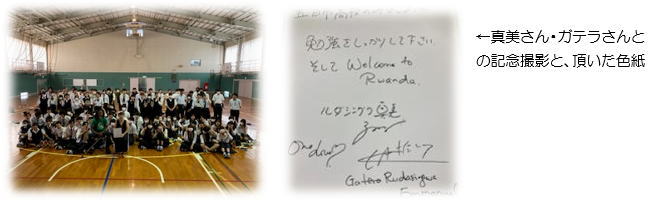 ←真美さん・ガテラさんと
の記念撮影と、頂いた色紙
勉強をしっかりして下さい
そして Welcome to
Rwanda.
ルダシングワ真美
One love
Gatera Rudasingwa
Emmanuel